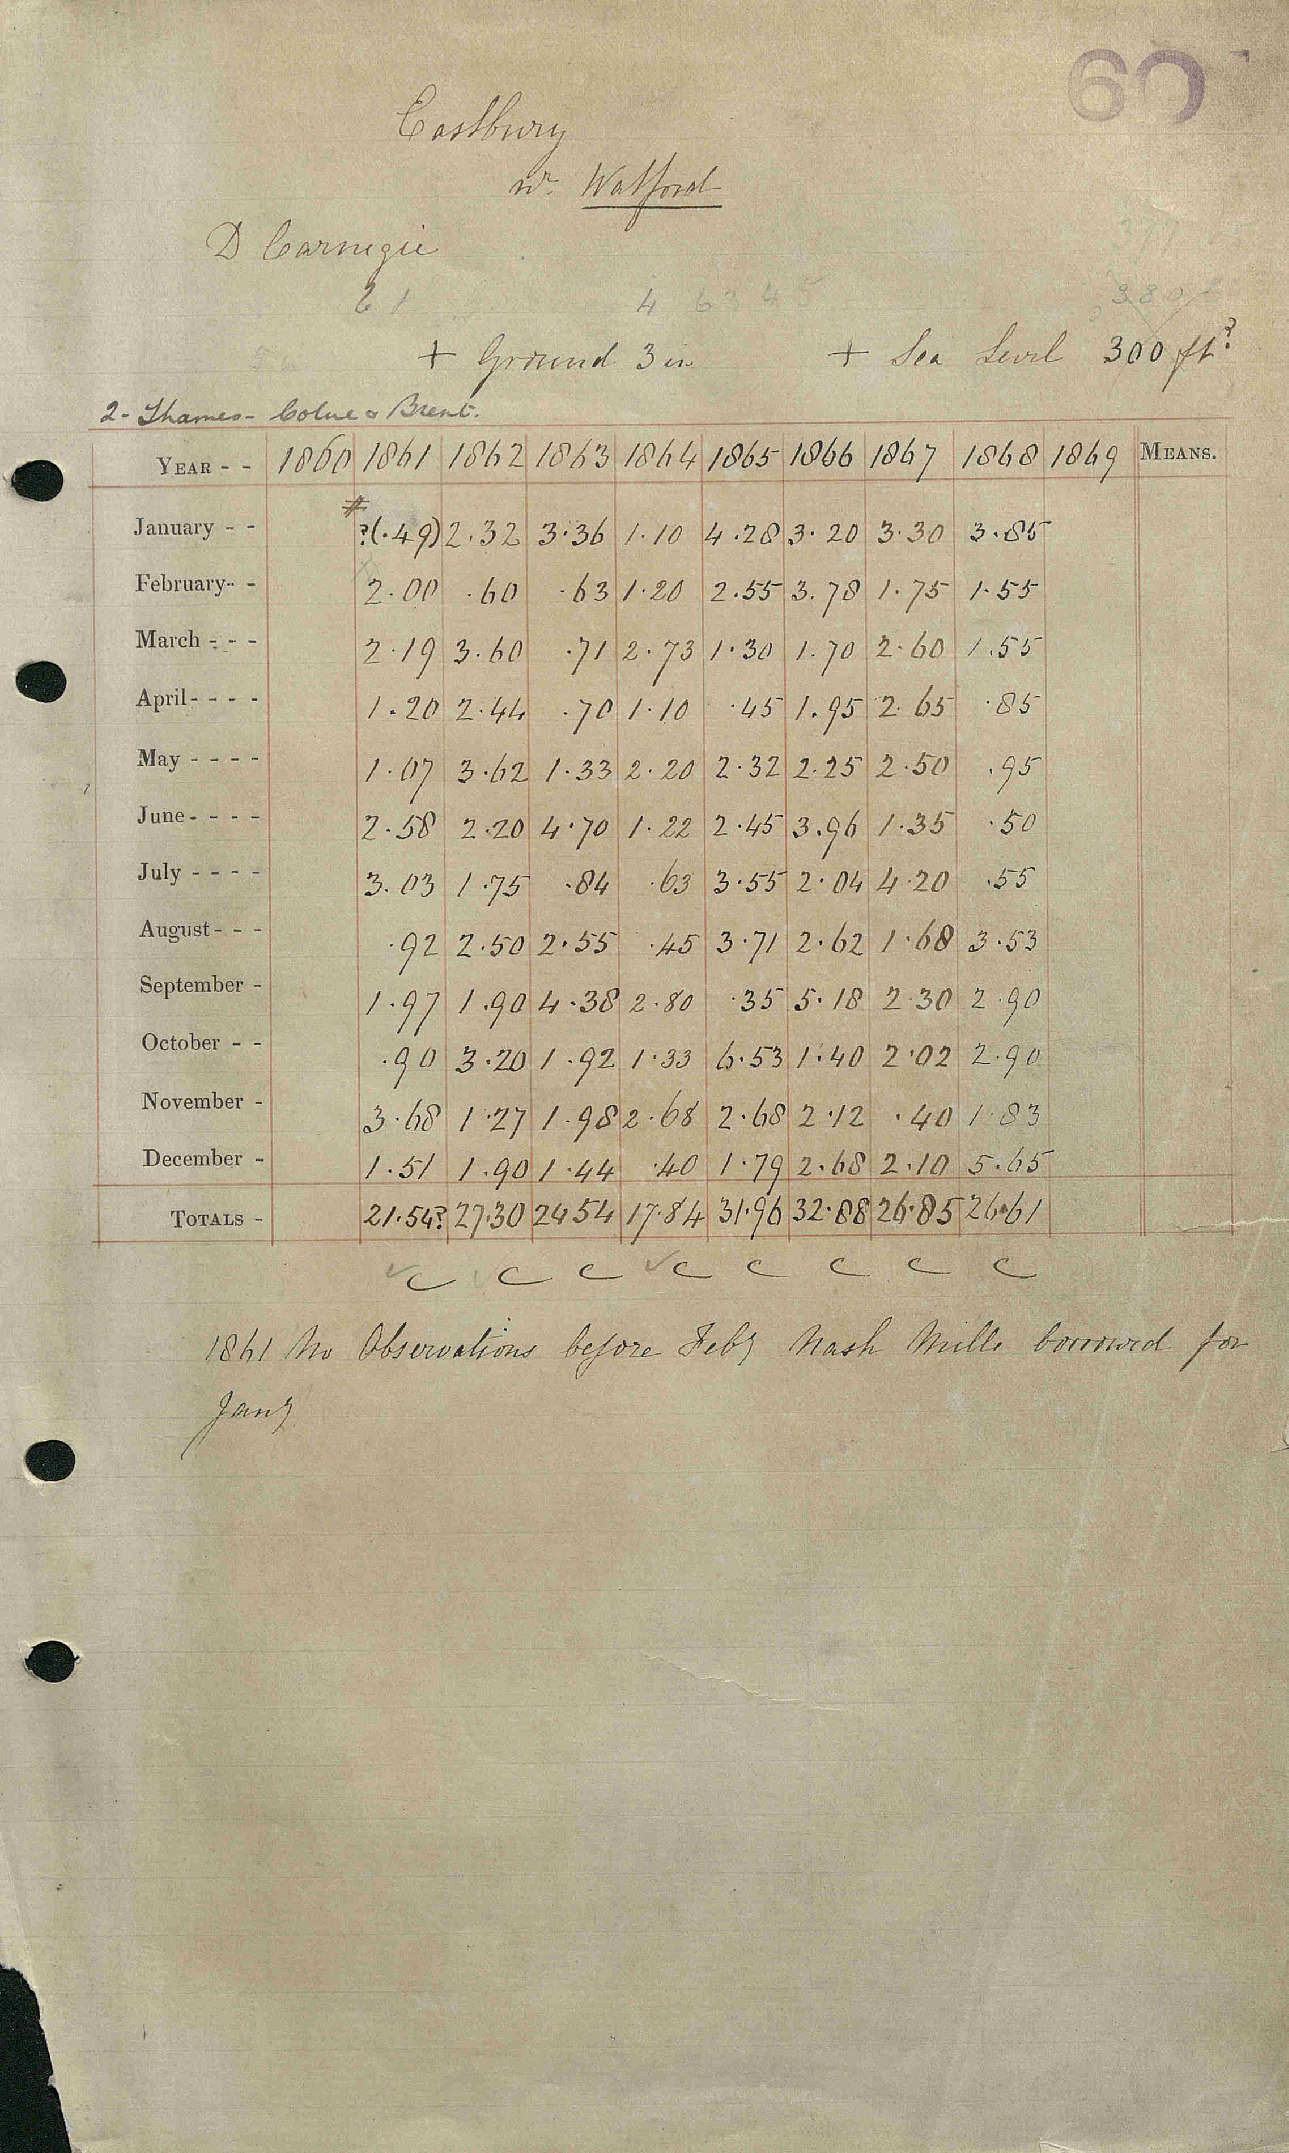 60
Eastbury
nr. Watford
D Carnegie
61 4 63 45 380 ft
+ Ground 3 in + Sea Level 300 ft?
2 - Thames - Colne & Brent.
YEAR - - 1860 1861 1862 1863 1864 1865 1866 1867 1868 1869 MEANS.
#
January - - ?(.49) 2.32 3.36 1.10 4.28 3.20 3.30 3.85
February - - 2.00 .60 .63 1.20 2.55 3.78 1.75 1.55
March - - - 2.19 3.60 .71 2.73 1.30 1.70 2.60 1.55
April - - - - 1.20 2.44 .70 1.10 .45 1.95 2.65 .85
May - - - - 1.07 3.62 1.33 2.20 2.32 2.25 2.50 .95
June - - - - 2.58 2.20 4.70 1.22 2.45 3.96 1.35 .50
July - - - - 3.03 1.75 .84 .63 3.55 2.04 4.20 .55
August - - - .92 2.50 2.55 .45 3.71 2.62 1.68 3.53
September - 1.97 1.90 4.38 2.80 .35 5.18 2.30 2.90
October - - .90 3.20 1.92 1.33 6.53 1.40 2.02 2.90
November - 3.68 1.27 1.98 2.68 2.68 2.12 .40 1.83
December - 1.51 1.90 1.44 .40 1.79 2.68 2.10 5.65
TOTALS - 21.54? 27.30 24 54 17.84 31.96 32.88 26.85 26.61
c c c c c c c c
1861 No Observations before Feby Nash Mills borrowed for
Jany